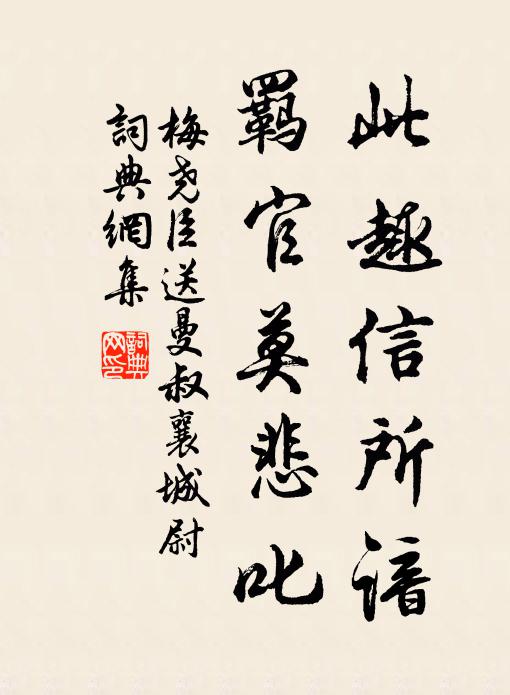 此趣信所谙
羁官莫悲叱
梅尧臣送曼叔襄城尉
词典網集
詞典网印